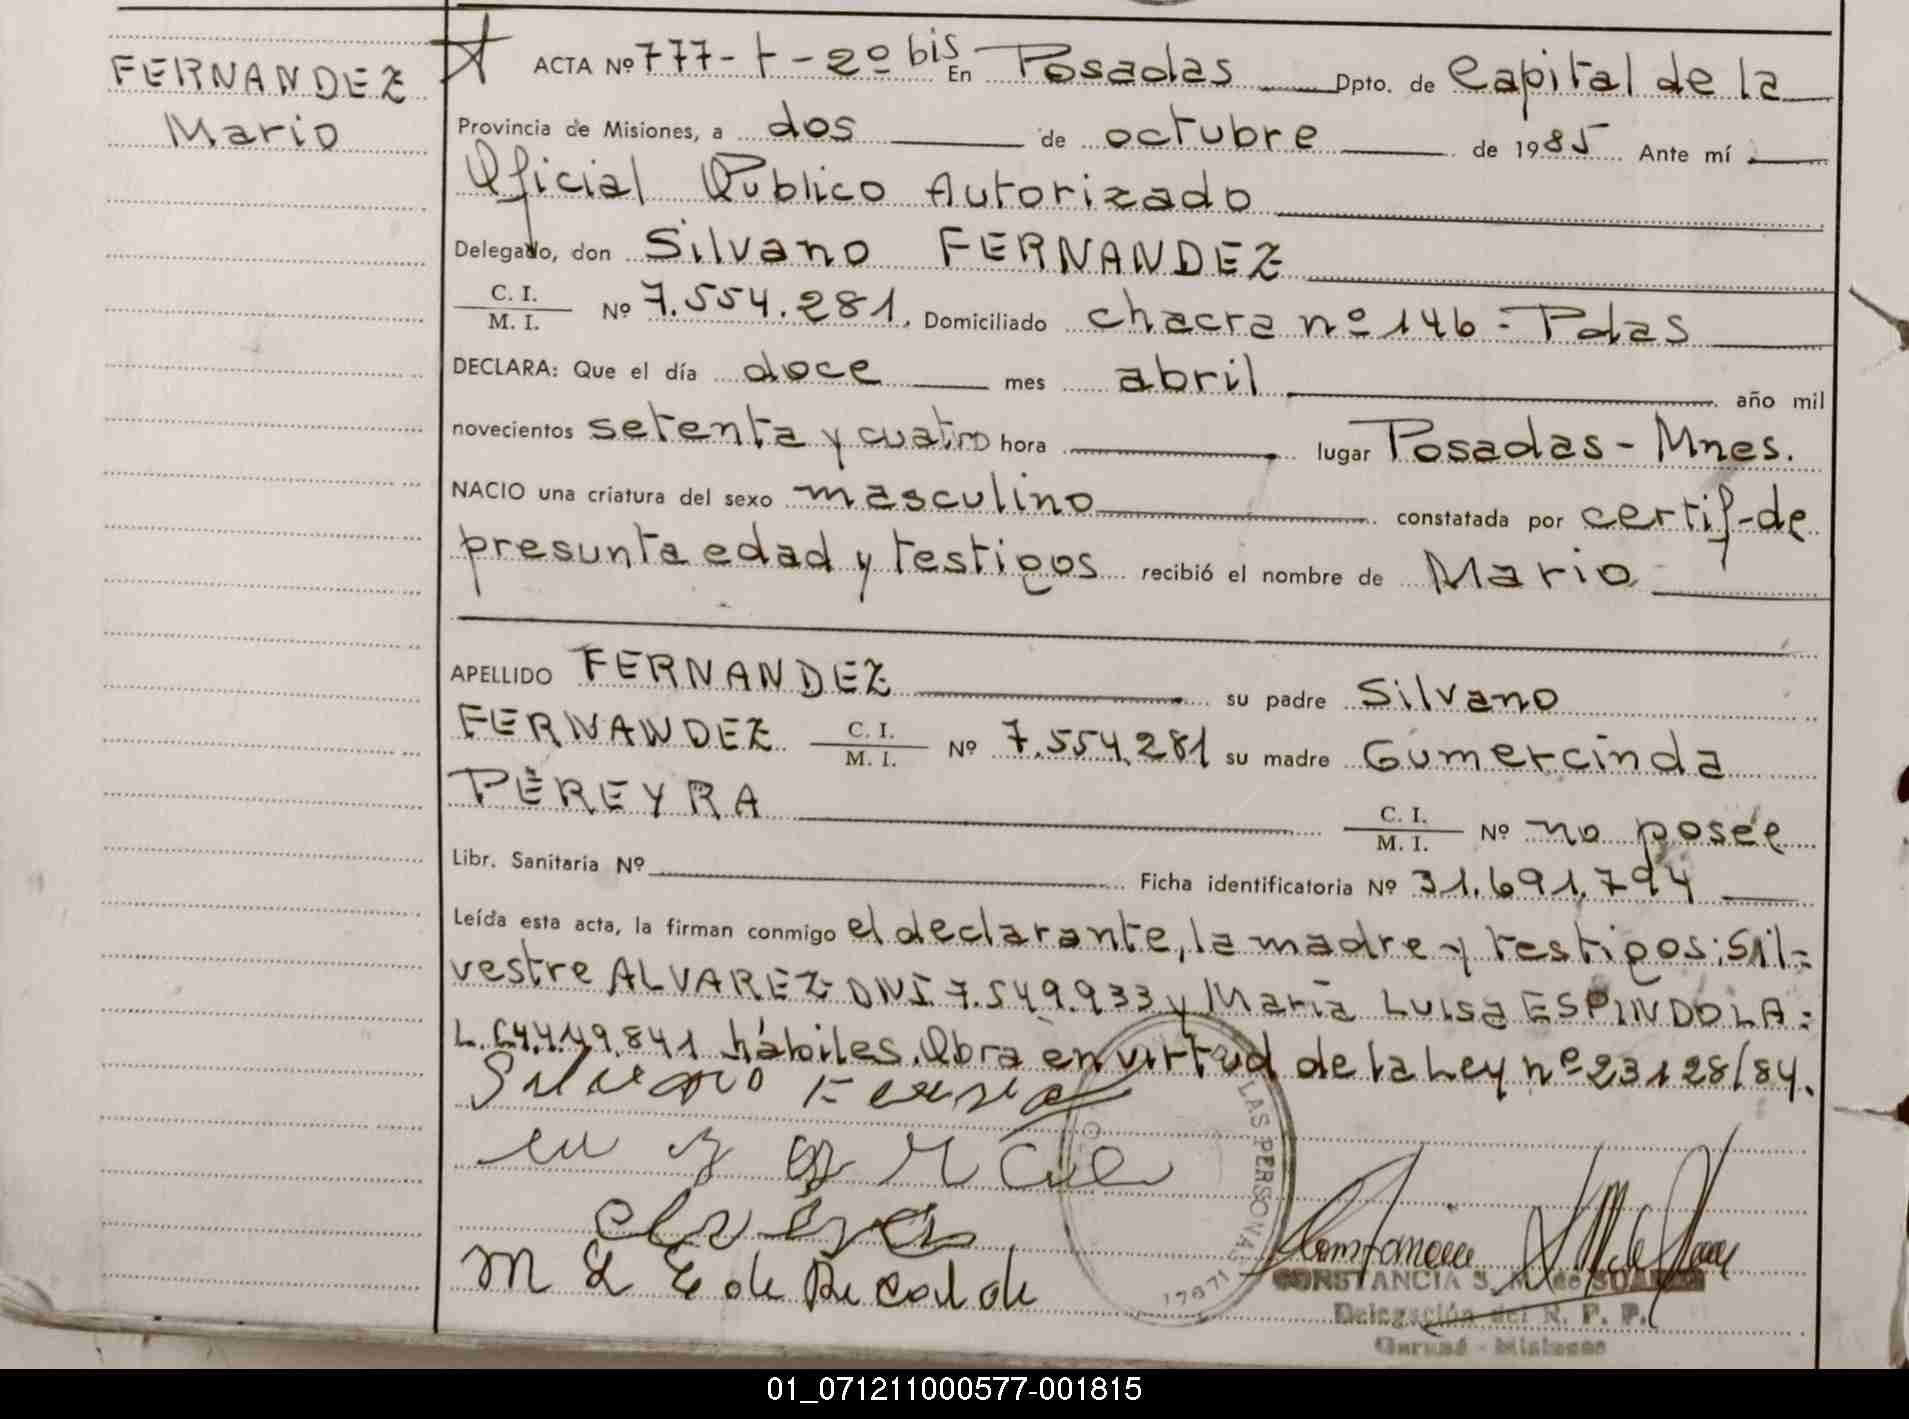 FERNANDEZ
Mario
ACTA Nº 777-t-2º bis En Posadas Dpto. de Capital de la
Provincia de Misiones, a dos de octubre de 1985 Ante mí
Oficial Público Autorizado
Delegado, don Silvano FERNANDEZ
C. I. / M. I. Nº 7.554.281. Domiciliado chacra nº 146 = Pdas
DECLARA: Que el día doce mes abril año mil
novecientos setenta y cuatro hora lugar Posadas - Mnes.
NACIO una criatura del sexo masculino constatada por certif-de
presunta edad y testigos recibió el nombre de Mario
APELLIDO FERNANDEZ su padre Silvano
FERNANDEZ C. I. / M. I. Nº 7.554.281 su madre Gumercinda
PEREYRA C. I. / M. I. Nº no posee
Libr. Sanitaria Nº Ficha identificatoria Nº 31.691.794
Leída esta acta, la firman conmigo el declarante, la madre y testigos: Sil=
vestre ALVAREZ- DNI. 7.549.933 y María Luisa ESPINDOLA=
L.C 4.419.841 hábiles. Obra en virtud de la Ley nº 23128/84.
Silvano
M L E de Ricalde
LAS PERSONAS
CONSTANCIA S. M. de SUAREZ
Delegación del R. P. P.
Garupá - Misiones
01_071211000577-001815